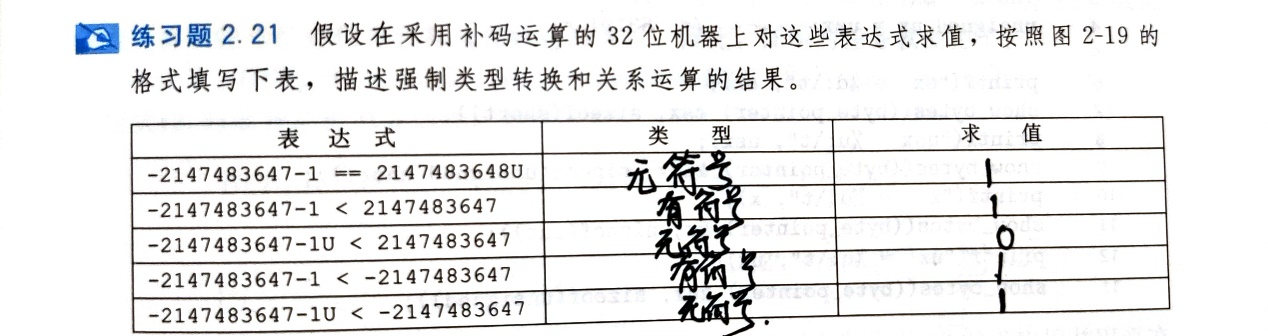 练习题 2.21 假设在采用补码运算的 32 位机器上对这些表达式求值，按照图 2-19 的
格式填写下表，描述强制类型转换和关系运算的结果。
表 达 式 类 型 求 值
-2147483647-1 == 2147483648U 无符号 1
-2147483647-1 < 2147483647 有符号 1
-2147483647-1U < 2147483647 无符号 0
-2147483647-1 < -2147483647 有符号 1
-2147483647-1U < -2147483647 无符号. 1